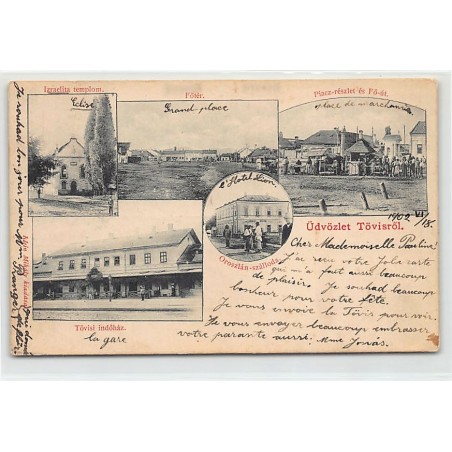 Izraelita templom.
Eclise
Főtér.
Grand place
Piacz-részlet és Fő-út.
place de marchands
l'Hotel Lion.
Oroszlán-szálloda.
1902 VI/18.
Üdvözlet Tövisről.
Tövisi indóház.
la gare
Cher Mademoiselle Pauline!
J'ai reçu votre jolie carte
qui m'a fait aussi beaucoup
de plaisir. Je souhad beaucoup
bonheur pour votre fête.
Je vous envoie la Tövis pour voir.
Je vous envoyer beaucoup embrasser
votre parante aussi; Mme Jonás.
Je souhad
bon jour pour